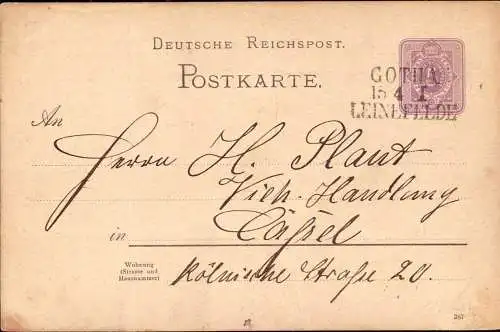 DEUTSCHE REICHSPOST.
POSTKARTE.
GOTHA
15 4 I
LEINEFELDE
An
Herrn H. Plaut
Vieh-Handlung
in Cassel
Wohnung
(Strasse und
Hausnummer)
Kölnische Straße 20.